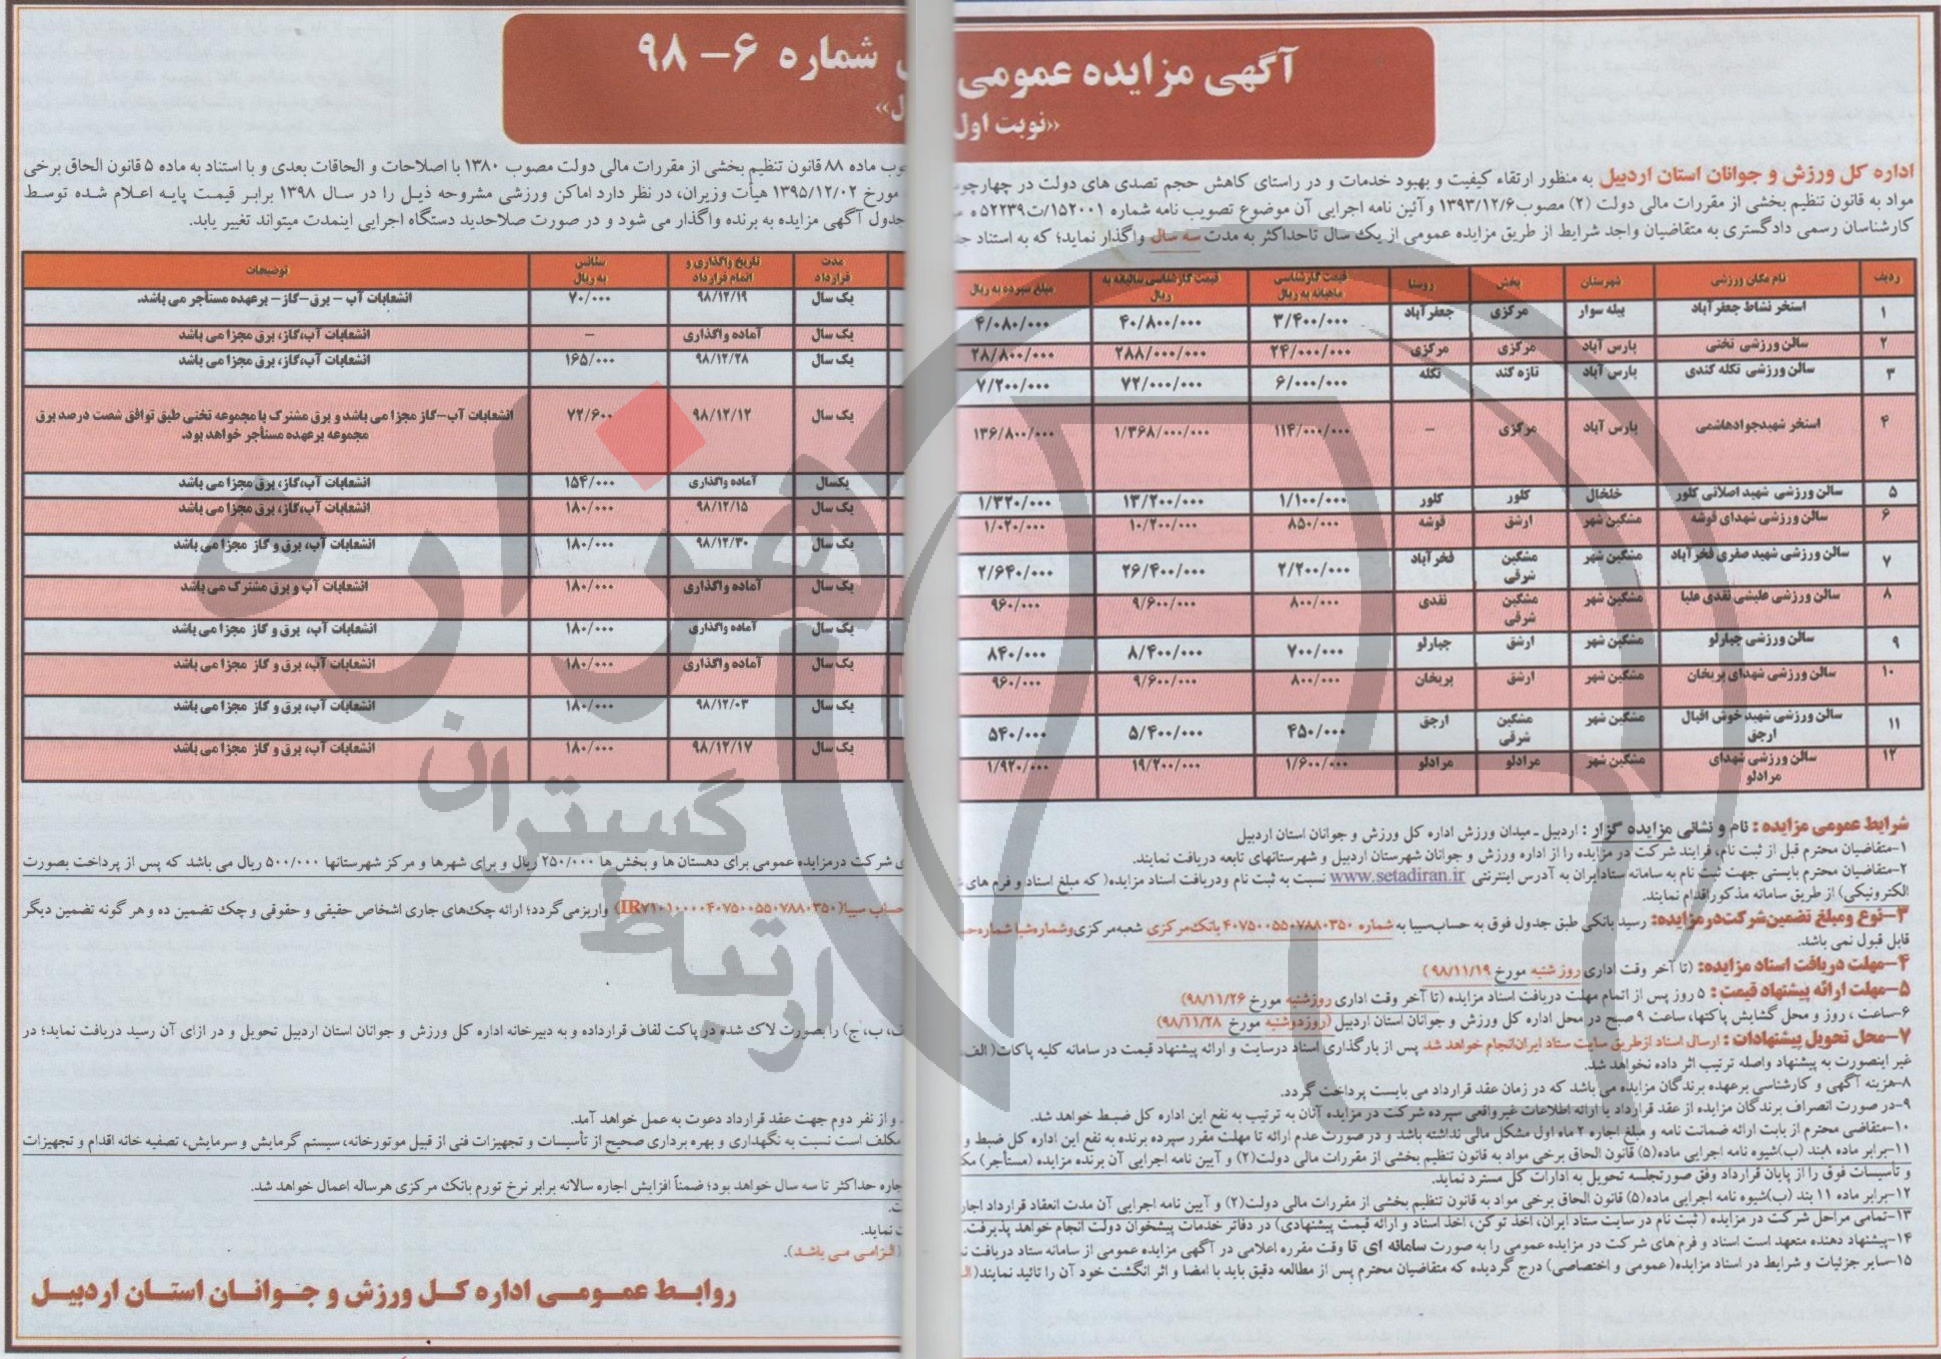 آگهی مزایده عمومی شماره ۶-۹۸
«نوبت اول»
اداره کل ورزش و جوانان استان اردبیل به منظور ارتقاء کیفیت و بهبود خدمات و در راستای کاهش حجم تصدی های دولت در چهارچوب ماده ۸۸ قانون تنظیم بخشی از مقررات مالی دولت مصوب ۱۳۸۰ با اصلاحات و الحاقات بعدی و با استناد به ماده ۵ قانون الحاق برخی
مواد به قانون تنظیم بخشی از مقررات مالی دولت (۲) مصوب ۱۳۹۳/۱۲/۶ و آئین نامه اجرایی آن موضوع تصویب نامه شماره ۱۵۲۰۰۱/ت۵۲۲۳۹ ه مورخ ۱۳۹۵/۱۲/۰۲ هیأت وزیران، در نظر دارد اماکن ورزشی مشروحه ذیل را در سال ۱۳۹۸ برابر قیمت پایه اعلام شده توسط
کارشناسان رسمی دادگستری به متقاضیان واجد شرایط از طریق مزایده عمومی از یک سال تا حداکثر به مدت سه سال واگذار نماید؛ که به استناد جدول آگهی مزایده به برنده واگذار می شود و در صورت صلاحدید دستگاه اجرایی اینمدت میتواند تغییر یابد.
ردیف نام مکان ورزشی شهرستان بخش روستا قیمت کارشناسی ماهیانه به ریال قیمت کارشناسی سالیانه به ریال مبلغ سپرده به ریال مدت قرارداد تاریخ واگذاری و اتمام قرارداد سئانس به ریال توضیحات
۱ استخر نشاط جعفرآباد بیله سوار مرکزی جعفرآباد ۳/۴۰۰/۰۰۰ ۴۰/۸۰۰/۰۰۰ ۴/۰۸۰/۰۰۰ یک سال ۹۸/۱۲/۱۹ ۷۰/۰۰۰ انشعابات آب - برق-گاز- برعهده مستأجر می باشد.
۲ سالن ورزشی تختی پارس آباد مرکزی مرکزی ۲۴/۰۰۰/۰۰۰ ۲۸۸/۰۰۰/۰۰۰ ۲۸/۸۰۰/۰۰۰ یک سال آماده واگذاری - انشعابات آب،گاز، برق مجزا می باشد
۳ سالن ورزشی تکله کندی پارس آباد تازه کند تکله ۶/۰۰۰/۰۰۰ ۷۲/۰۰۰/۰۰۰ ۷/۲۰۰/۰۰۰ یک سال ۹۸/۱۲/۲۸ ۱۶۵/۰۰۰ انشعابات آب،گاز، برق مجزا می باشد
۴ استخر شهیدجوادهاشمی پارس آباد مرکزی - ۱۱۴/۰۰۰/۰۰۰ ۱/۳۶۸/۰۰۰/۰۰۰ ۱۳۶/۸۰۰/۰۰۰ یک سال ۹۸/۱۲/۱۲ ۷۲/۶۰۰ انشعابات آب-گاز مجزا می باشد و برق مشترک با مجموعه تختی طبق توافق شصت درصد برق مجموعه برعهده مستأجر خواهد بود.
۵ سالن ورزشی شهید اصلانی کلور خلخال کلور کلور ۱/۱۰۰/۰۰۰ ۱۳/۲۰۰/۰۰۰ ۱/۳۲۰/۰۰۰ یکسال آماده واگذاری ۱۵۴/۰۰۰ انشعابات آب،گاز، برق مجزا می باشد
۶ سالن ورزشی شهدای قوشه مشگین شهر ارشق قوشه ۸۵۰/۰۰۰ ۱۰/۲۰۰/۰۰۰ ۱/۰۲۰/۰۰۰ یک سال ۹۸/۱۲/۱۵ ۱۸۰/۰۰۰ انشعابات آب،گاز، برق مجزا می باشد
۷ سالن ورزشی شهید صفری فخرآباد مشگین شهر مشگین شرقی فخرآباد ۲/۲۰۰/۰۰۰ ۲۶/۴۰۰/۰۰۰ ۲/۶۴۰/۰۰۰ یک سال ۹۸/۱۲/۳۰ ۱۸۰/۰۰۰ انشعابات آب، برق و گاز مجزا می باشد
۸ سالن ورزشی علیشی نقدی علیا مشگین شهر مشگین شرقی نقدی ۸۰۰/۰۰۰ ۹/۶۰۰/۰۰۰ ۹۶۰/۰۰۰ یک سال آماده واگذاری ۱۸۰/۰۰۰ انشعابات آب و برق مشترک می باشد
۹ سالن ورزشی جبارلو مشگین شهر ارشق جبارلو ۷۰۰/۰۰۰ ۸/۴۰۰/۰۰۰ ۸۴۰/۰۰۰ یک سال آماده واگذاری ۱۸۰/۰۰۰ انشعابات آب، برق و گاز مجزا می باشد
۱۰ سالن ورزشی شهدای پریخان مشگین شهر ارشق پریخان ۸۰۰/۰۰۰ ۹/۶۰۰/۰۰۰ ۹۶۰/۰۰۰ یک سال آماده واگذاری ۱۸۰/۰۰۰ انشعابات آب، برق و گاز مجزا می باشد
۱۱ سالن ورزشی شهید خوش اقبال ارجق مشگین شهر مشگین شرقی ارجق ۴۵۰/۰۰۰ ۵/۴۰۰/۰۰۰ ۵۴۰/۰۰۰ یک سال ۹۸/۱۲/۰۳ ۱۸۰/۰۰۰ انشعابات آب، برق و گاز مجزا می باشد
۱۲ سالن ورزشی شهدای مرادلو مشگین شهر مرادلو مرادلو ۱/۶۰۰/۰۰۰ ۱۹/۲۰۰/۰۰۰ ۱/۹۲۰/۰۰۰ یک سال ۹۸/۱۲/۱۷ ۱۸۰/۰۰۰ انشعابات آب، برق و گاز مجزا می باشد
شرایط عمومی مزایده : نام و نشانی مزایده گزار : اردبیل ـ میدان ورزش اداره کل ورزش و جوانان استان اردبیل
۱-متقاضیان محترم قبل از ثبت نام، فرایند شرکت در مزایده را از اداره ورزش و جوانان شهرستان اردبیل و شهرستانهای تابعه دریافت نمایند.
۲-متقاضیان محترم بایستی جهت ثبت نام به سامانه ستادایران به آدرس اینترنتی www.setadiran.ir نسبت به ثبت نام ودریافت اسناد مزایده( که مبلغ اسناد و فرم های شرکت درمزایده عمومی برای دهستان ها و بخش ها ۲۵۰/۰۰۰ ریال و برای شهرها و مرکز شهرستانها ۵۰۰/۰۰۰ ریال می باشد که پس از پرداخت بصورت
الکترونیکی) از طریق سامانه مذکور اقدام نمایند.
۳-نوع ومبلغ تضمین شرکت در مزایده: رسید بانکی طبق جدول فوق به حساب سیبا به شماره ۴۰۷۵۰۰۵۵۰۷۸۸۰۳۵۰ بانک مرکزی شعبه مرکزی وشماره شبا شماره حساب سیبا(IR۷۱۰۱۰۰۰۰۴۰۷۵۰۰۵۵۰۷۸۸۰۳۵۰) واریز می گردد؛ ارائه چک های جاری اشخاص حقیقی و حقوقی و چک تضمین ده و هر گونه تضمین دیگر
قابل قبول نمی باشد.
۴-مهلت دریافت اسناد مزایده: (تا آخر وقت اداری روز شنبه مورخ ۹۸/۱۱/۱۹ )
۵-مهلت ارائه پیشنهاد قیمت : ۵ روز پس از اتمام مهلت دریافت اسناد مزایده (تا آخر وقت اداری روزشنبه مورخ ۹۸/۱۱/۲۶)
۶-ساعت ، روز و محل گشایش پاکتها، ساعت ۹ صبح در محل اداره کل ورزش و جوانان استان اردبیل (روزدوشنبه مورخ ۹۸/۱۱/۲۸)
۷-محل تحویل پیشنهادات : ارسال اسناد ازطریق سایت ستاد ایران انجام خواهد شد پس از بارگذاری اسناد درسایت و ارائه پیشنهاد قیمت در سامانه کلیه پاکات( الف، ب، ج) را بصورت لاک شده در پاکت لفاف قرارداده و به دبیرخانه اداره کل ورزش و جوانان استان اردبیل تحویل و در ازای آن رسید دریافت نماید؛ در
غیر اینصورت به پیشنهاد واصله ترتیب اثر داده نخواهد شد.
۸-هزینه آگهی و کارشناسی برعهده برندگان مزایده می باشد که در زمان عقد قرارداد می بایست پرداخت گردد.
۹-در صورت انصراف برندگان مزایده از عقد قرارداد یا ارائه اطلاعات غیرواقعی سپرده شرکت در مزایده آنان به ترتیب به نفع این اداره کل ضبط خواهد شد.
۱۰-متقاضی محترم از بابت ارائه ضمانت نامه و مبلغ اجاره ۲ ماه اول مشکل مالی نداشته باشد و در صورت عدم ارائه تا مهلت مقرر سپرده برنده به نفع این اداره کل ضبط و از نفر دوم جهت عقد قرارداد دعوت به عمل خواهد آمد.
۱۱-برابر ماده ۸بند (ب)شیوه نامه اجرایی ماده(۵) قانون الحاق برخی مواد به قانون تنظیم بخشی از مقررات مالی دولت(۲) و آیین نامه اجرایی آن برنده مزایده (مستأجر) مکلف است نسبت به نگهداری و بهره برداری صحیح از تأسیسات و تجهیزات فنی از قبیل موتورخانه، سیستم گرمایش و سرمایش، تصفیه خانه اقدام و تجهیزات
و تأسیسات فوق را از پایان قرارداد وفق صورتجلسه تحویل به ادارات کل مسترد نماید.
۱۲-برابر ماده ۱۱ بند (ب)شیوه نامه اجرایی ماده(۵) قانون الحاق برخی مواد به قانون تنظیم بخشی از مقررات مالی دولت(۲) و آیین نامه اجرایی آن مدت انعقاد قرارداد اجاره حداکثر تا سه سال خواهد بود؛ ضمناً افزایش اجاره سالانه برابر نرخ تورم بانک مرکزی هرساله اعمال خواهد شد.
۱۳-تمامی مراحل شرکت در مزایده ( ثبت نام در سایت ستاد ایران، اخذ توکن، اخذ اسناد و ارائه قیمت پیشنهادی) در دفاتر خدمات پیشخوان دولت انجام خواهد پذیرفت.
۱۴-پیشنهاد دهنده متعهد است اسناد و فرم های شرکت در مزایده عمومی را به صورت سامانه ای تا وقت مقرره اعلامی در آگهی مزایده عمومی از سامانه ستاد دریافت نماید.
۱۵-سایر جزئیات و شرایط در اسناد مزایده( عمومی و اختصاصی) درج گردیده که متقاضیان محترم پس از مطالعه دقیق باید با امضا و اثر انگشت خود آن را تائید نمایند(الزامی می باشد).
روابط عمومی اداره کل ورزش و جوانان استان اردبیل
هزاره
گستران
ارتباط